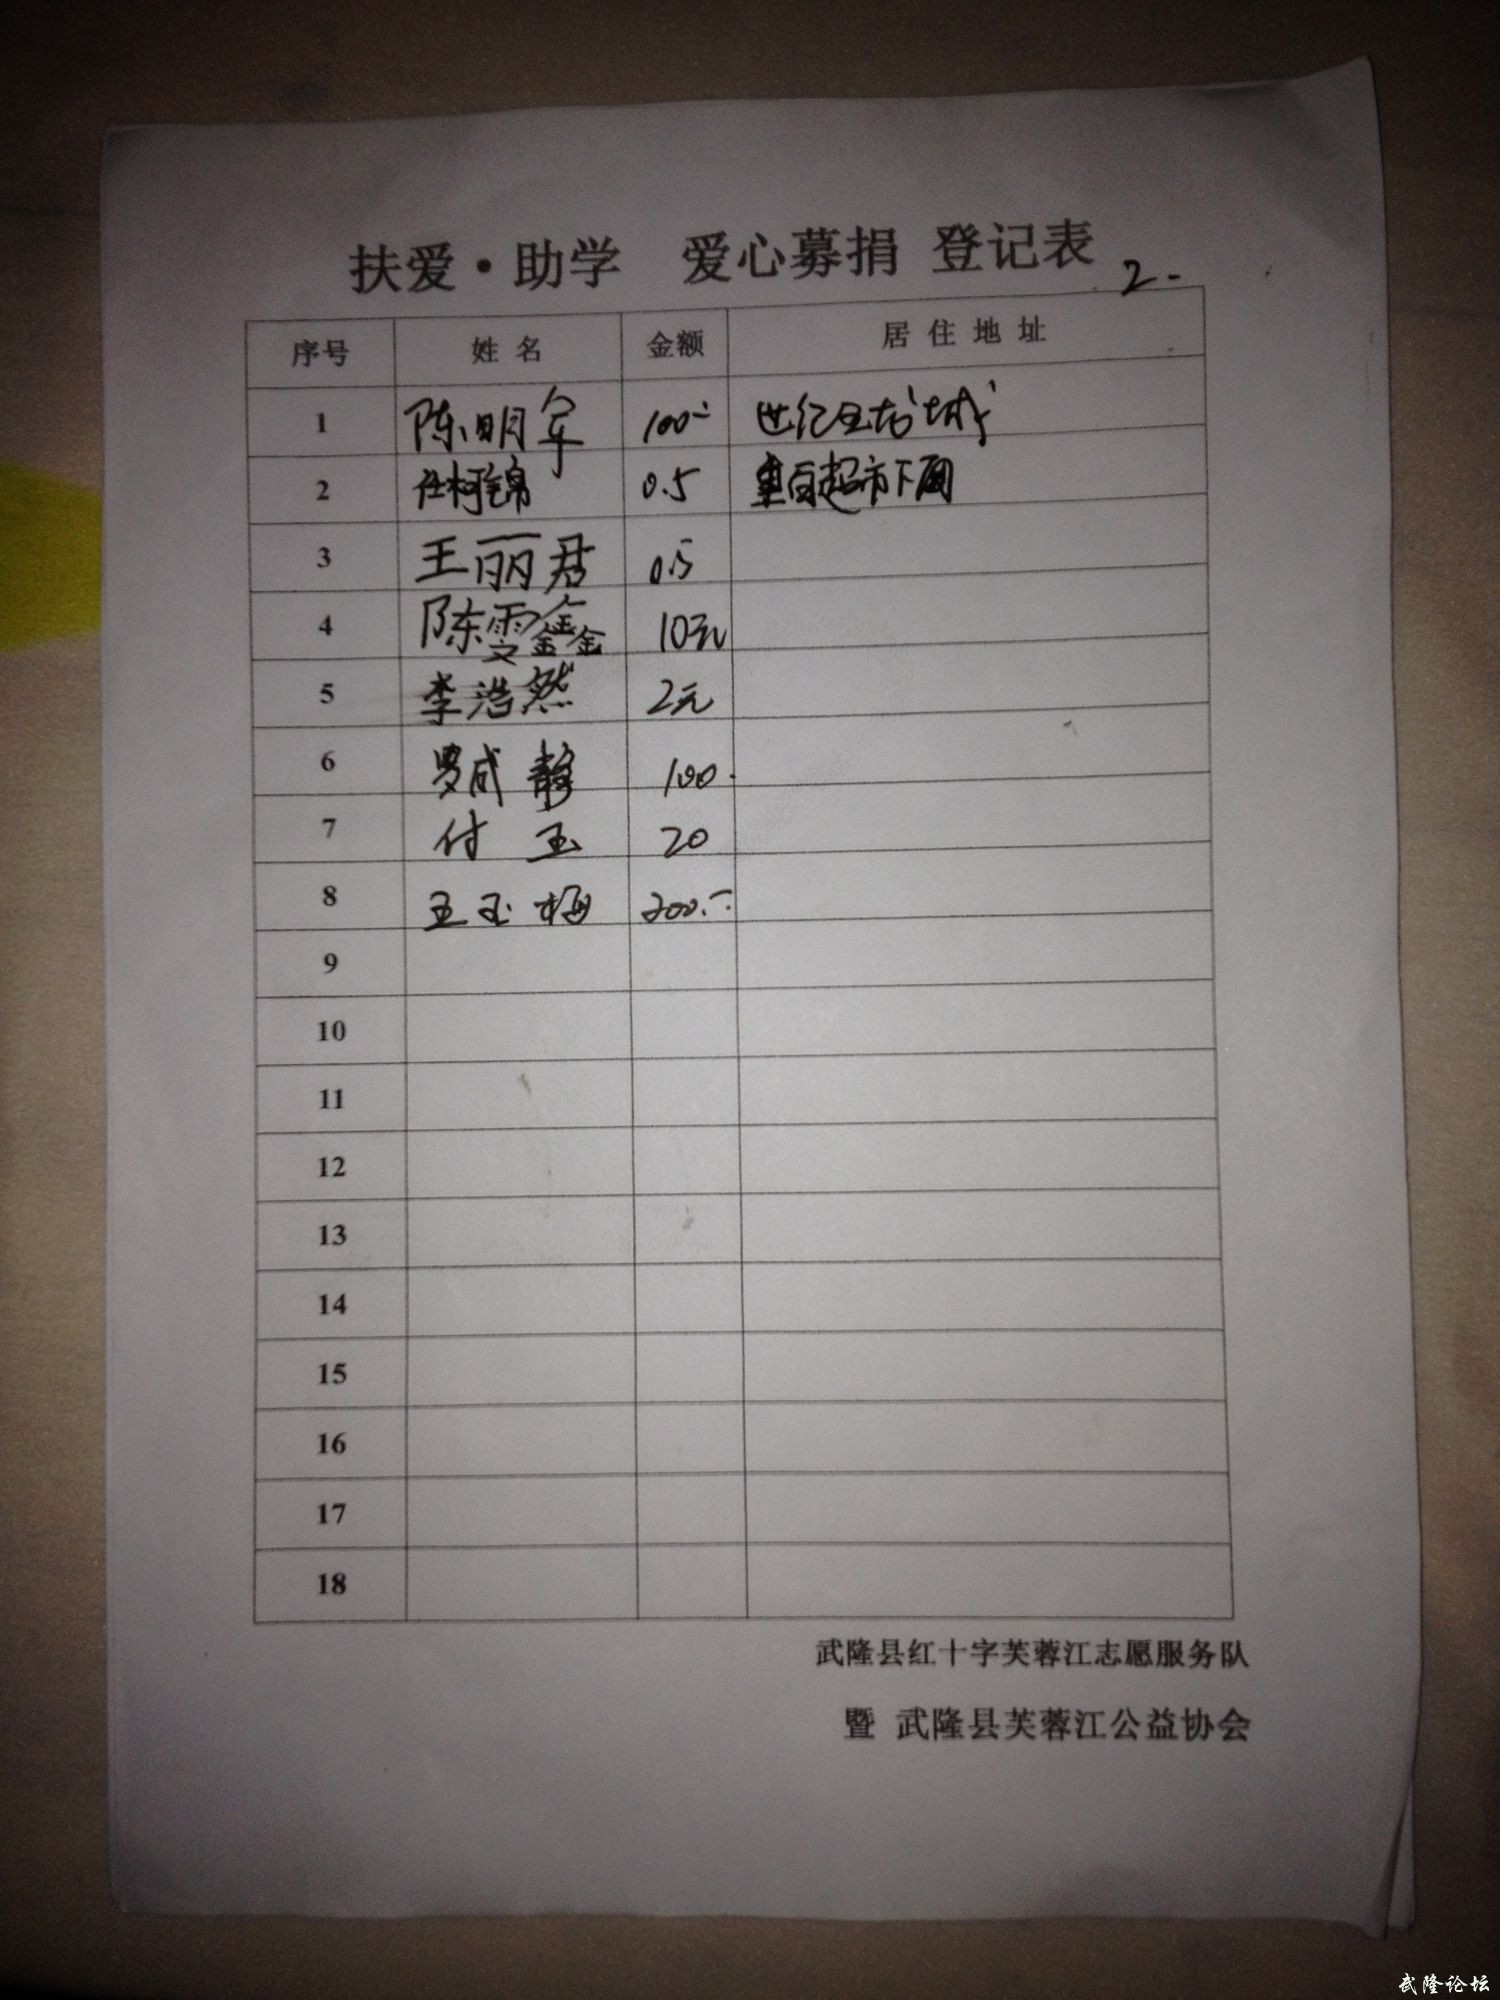 扶爱·助学 爱心募捐 登记表
2-
序号 姓名 金额 居住地址
1 陈明军 100 世纪生活城
2 任柯锦 0.5 重百超市下面
3 王丽君 0.5
4 陈雯鑫 10元
5 李浩然 2元
6 罗威静 100.
7 付玉 20
8 王玉梅 200.
9
10
11
12
13
14
15
16
17
18
武隆县红十字芙蓉江志愿服务队
暨 武隆县芙蓉江公益协会
武隆论坛